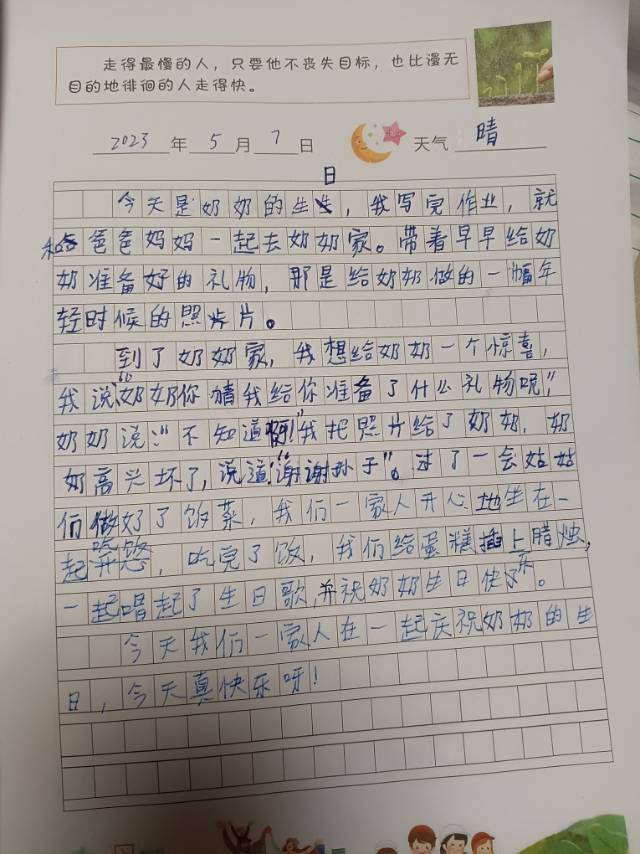 走得最慢的人，只要他不丧失目标，也比漫无
目的地徘徊的人走得快。
2023年5月7日 天气 晴
日
今天是奶奶的生，我写完作业，就
和爸爸妈妈一起去奶奶家。带着早早给奶
奶准备好的礼物，那是给奶奶做的一幅年
轻时候的照片。
到了奶奶家，我想给奶奶一个惊喜，
我说“奶奶你猜我给你准备了什么礼物呢，”
奶奶说：“不知道啊！”我把照片给了奶奶，奶
奶高兴坏了，说道：“谢谢孙子”。过了一会姑姑
们做好了饭菜，我们一家人开心地坐在一
起，吃完了饭，我们给蛋糕插上腊烛，
一起唱起了生日歌，并祝奶奶生日快乐。
今天我们一家人在一起庆祝奶奶的生
日，今天真快乐呀！